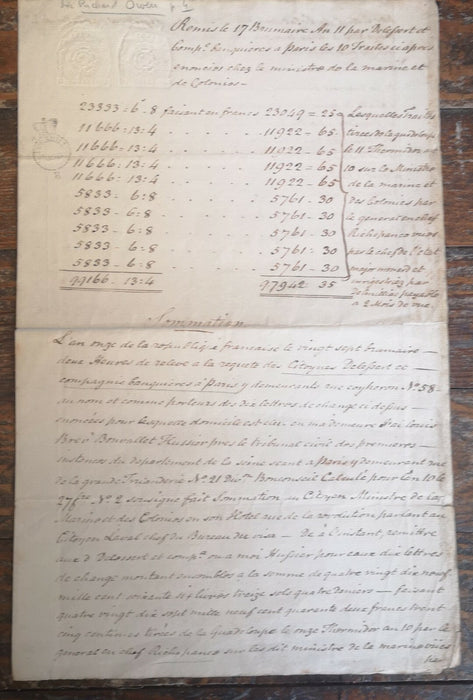 Sir Richard Owen
Remis le 17 Brumaire An 11 par Delessert et
Compie. banquieres a Paris les 10 Traites ci après
enoncies chez le ministre de la marine et
de Colonies.
23333 = 6 - 8 faisant en francs 23049 = 25
11666 = 13 : 4 11922 = 65
11666 = 13 : 4 11922 = 65
11666 = 13 : 4 11922 = 65
11666 = 13 : 4 11922 = 65
5833 - 6 : 8 5761 - 30
5833 - 6 : 8 5761 - 30
5833 - 6 : 8 5761 - 30
5833 - 6 : 8 5761 - 30
5833 - 6 : 8 5761 - 30
99166 - 13 : 4 97942 35
Lesquelles Traites
tirees de la guadeloupe
le 11 Thermidor an
10 sur le Ministre
de la marine et
des Colonies par
le general en chef
Richepance
par le chef de l'etat
major
enregistrez par
payable
a 2 Mois de vue.
Sommation
L'an onze de la republiq e francaise le vingt sept brumaire
deux Heures de releve a la requete des Citoyens Delessert et
compagnie banquieres a Paris y demeurants rue coqheron No. 58
au nom et comme porteurs des dix lettres de change ci dessus
enoncées pour laquelle domicile est elu en ma demeure J'ai Louis
Bouvallet Hussier pres le tribunal civil des premieres
instances du departement de la seine seant a Paris y demeurant rue
de la grande Truanderie No. 21 Bonconseil Patenté pour l'an 10 le
No. 2 soussigne fait Sommation au Citoyen Ministre de la
Marine et des Colonies en son Hotel rue de la revolution parlant au
Citoyen Laval chef du Bureau du visa — De a l'instant, remettre
aux d. Delessert et compie. ou a moi Hussier pour eux dix lettres
de change montant ensembles a la somme de quatre vingt dix neuf
mille cent soixante livres treize sols quatre deniers — faisant
quatre vingt dix sept mille neuf cent quarante deux francs trent
cinq centimes tirées de la Guadeloupe le onze Thermidor an 10 par le
general en chef Richepance sur les dit ministre de la marine visées
par